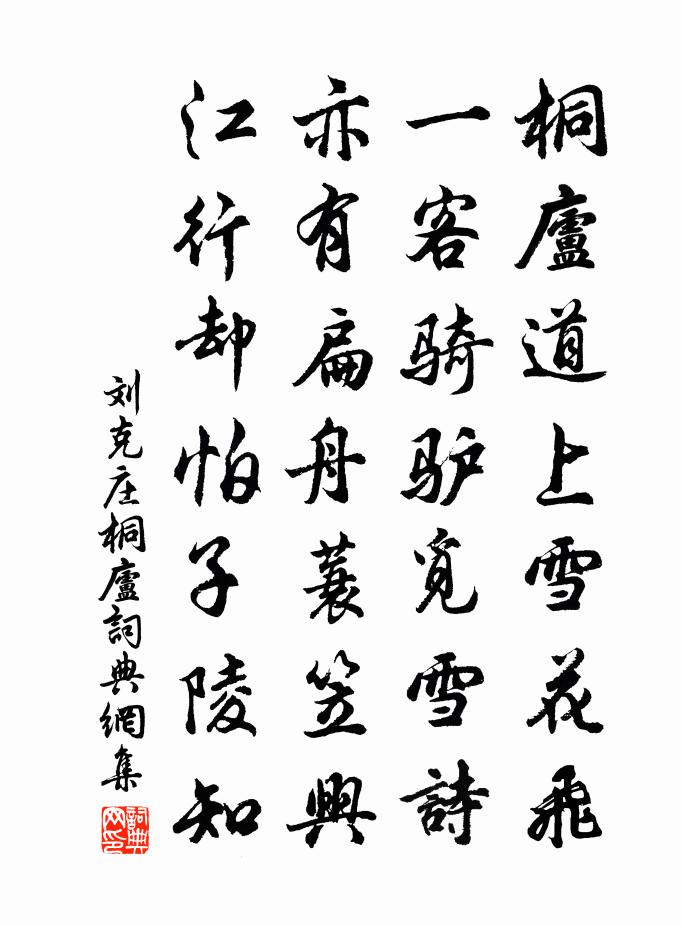 桐廬道上雪花飛
一客骑驴覓雪詩
亦有扁舟蓑笠興
江行却怕子陵知
刘克庄桐廬詞典網集
詞典网印